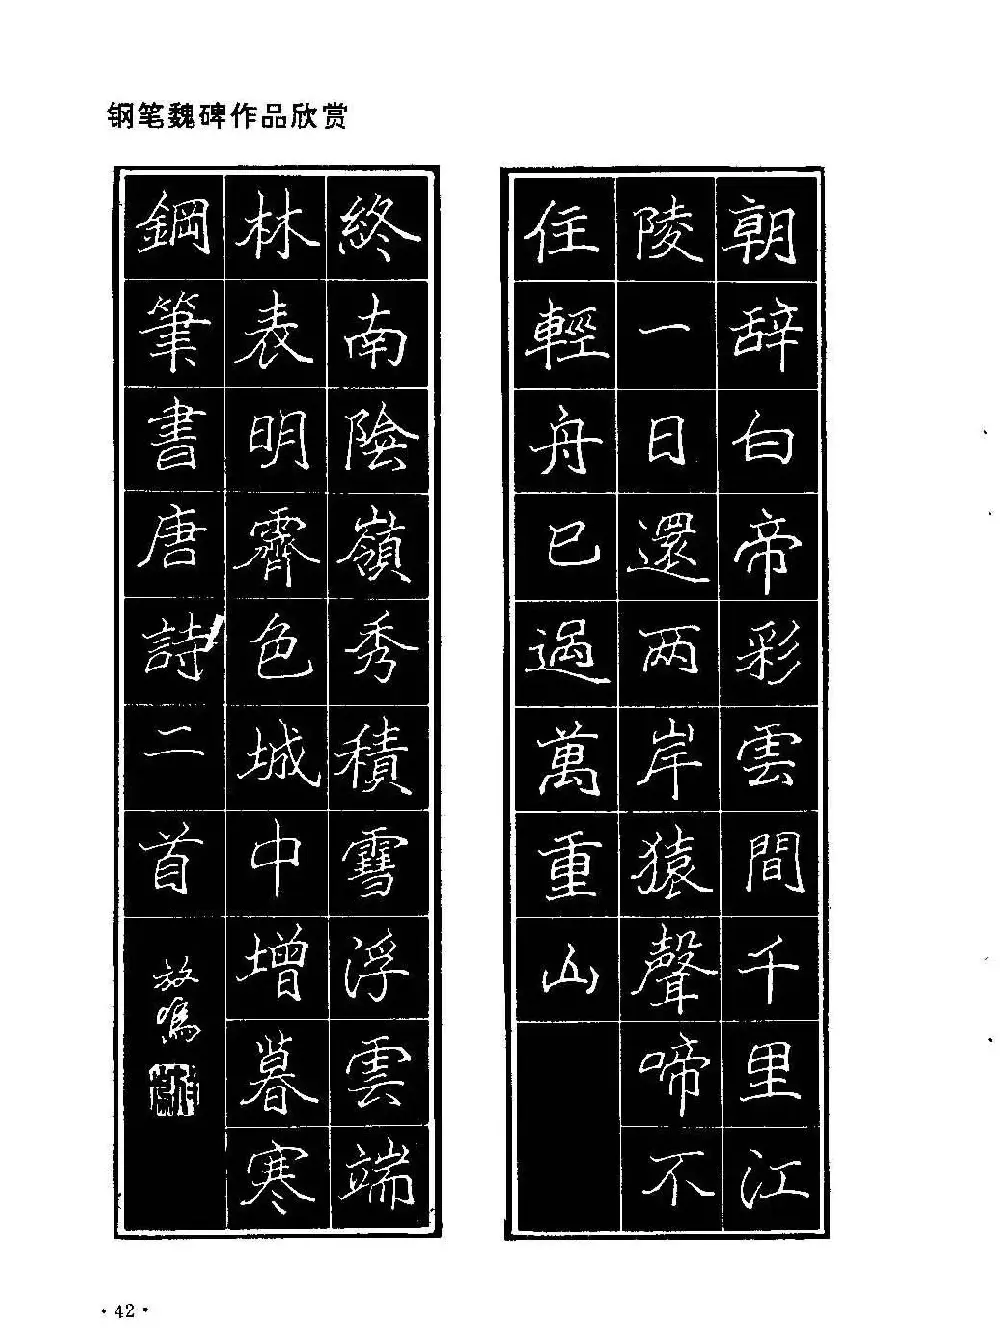 钢笔魏碑作品欣赏
朝辞白帝彩雲間千里江
陵一日還两岸猿聲啼不
住輕舟已過萬重山
終南陰嶺秀積雪浮雲端
林表明霽色城中增暮寒
鋼筆書唐詩二首
放鳴
·42·